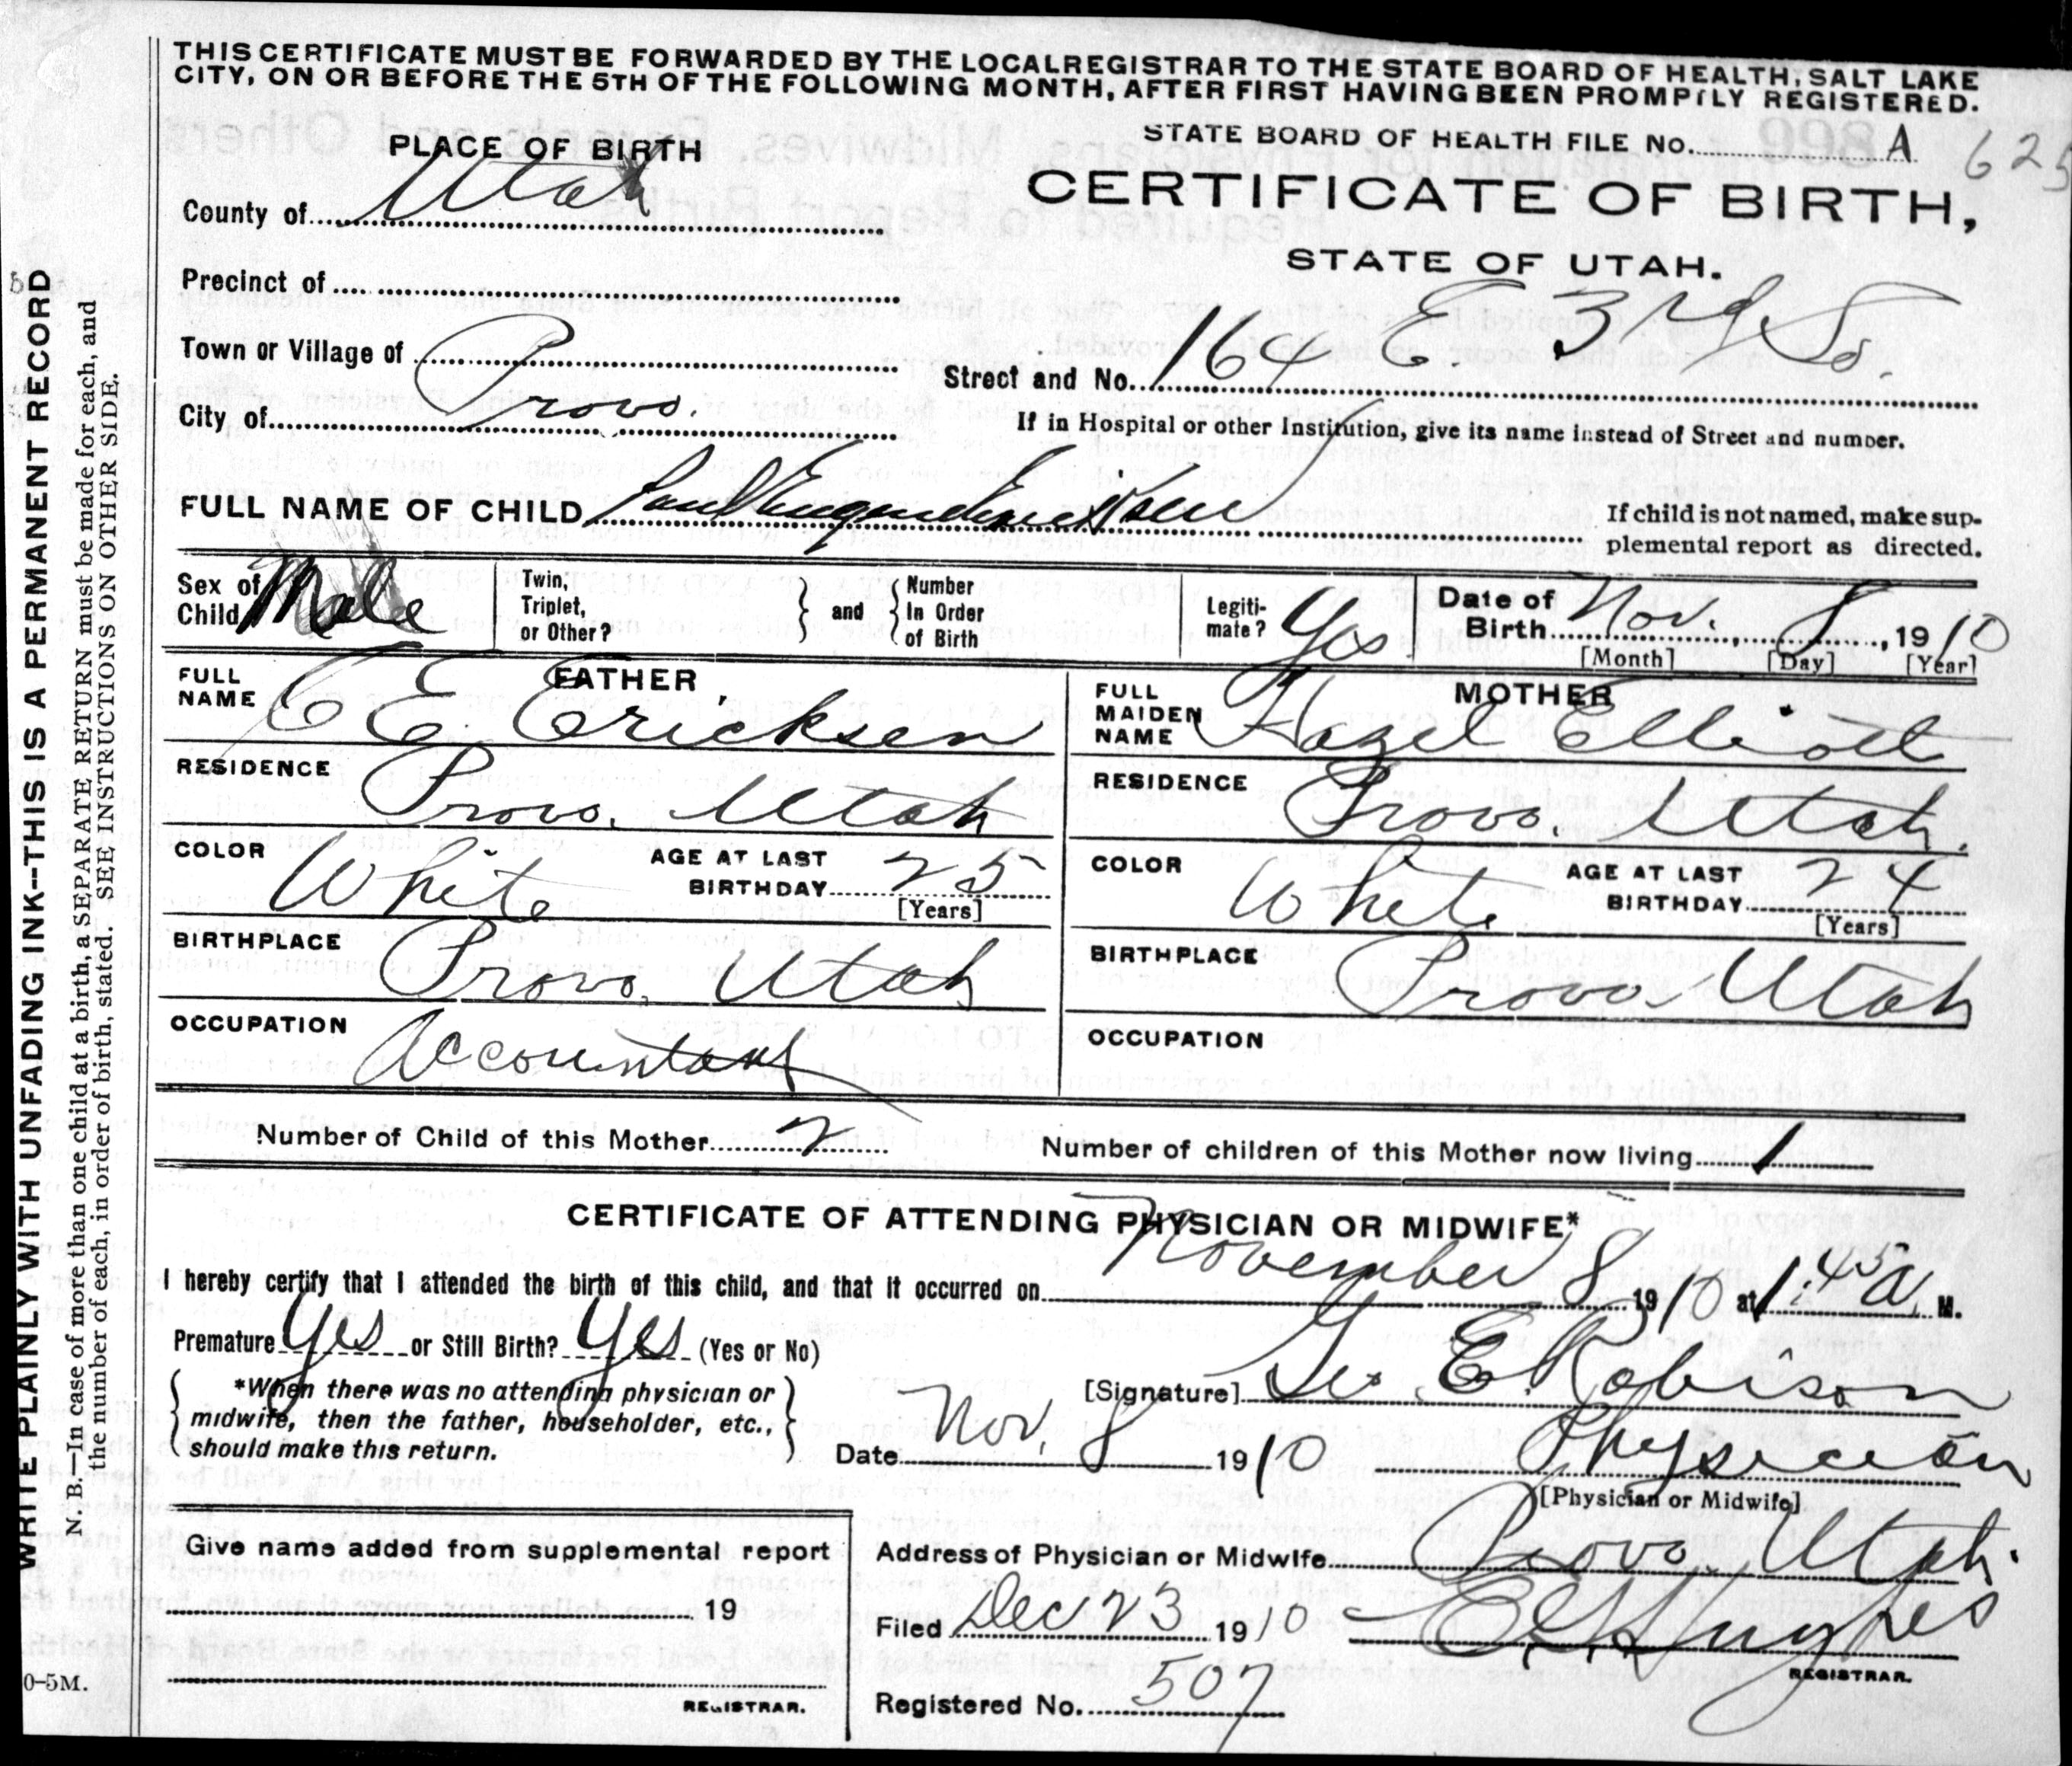 THIS CERTIFICATE MUST BE FORWARDED BY THE LOCAL REGISTRAR TO THE STATE BOARD OF HEALTH, SALT LAKE
CITY, ON OR BEFORE THE 5TH OF THE FOLLOWING MONTH, AFTER FIRST HAVING BEEN PROMPTLY REGISTERED.
STATE BOARD OF HEALTH FILE No. A 625
PLACE OF BIRTH
CERTIFICATE OF BIRTH,
County of Utah
STATE OF UTAH.
Precinct of
Town or Village of
Street and No. 164 E. 3rd So.
City of Provo.
If in Hospital or other Institution, give its name instead of Street and number.
FULL NAME OF CHILD Paul
If child is not named, make sup-
plemental report as directed.
Sex of Child Male
Twin, Triplet, or Other? and Number In Order of Birth
Legiti-mate? Yes
Date of Birth Nov. 8, 1910
[Month] [Day] [Year]
FATHER
FULL NAME E E Ericksen
RESIDENCE Provo, Utah
COLOR White AGE AT LAST BIRTHDAY 25
[Years]
BIRTHPLACE Provo, Utah
OCCUPATION Accountant
MOTHER
FULL MAIDEN NAME Hazel Elliott
RESIDENCE Provo, Utah.
COLOR White AGE AT LAST BIRTHDAY 24
[Years]
BIRTHPLACE Provo Utah
OCCUPATION
Number of Child of this Mother 2 Number of children of this Mother now living 1
CERTIFICATE OF ATTENDING PHYSICIAN OR MIDWIFE*
I hereby certify that I attended the birth of this child, and that it occurred on November 8 1910 at 1:45 a. M.
Premature Yes or Still Birth? Yes (Yes or No)
[Signature] Geo E Robison
*When there was no attending physician or
midwife, then the father, householder, etc.,
should make this return.
Date Nov. 8 1910 Physician
[Physician or Midwife]
Give name added from supplemental report
19
REGISTRAR.
Address of Physician or Midwife Provo, Utah.
Filed Dec 23 1910 Hughes
REGISTRAR.
Registered No. 507
WRITE PLAINLY WITH UNFADING INK--THIS IS A PERMANENT RECORD
N. B.—In case of more than one child at a birth, a SEPARATE RETURN must be made for each, and
the number of each, in order of birth, stated. SEE INSTRUCTIONS ON OTHER SIDE.
0-5M.